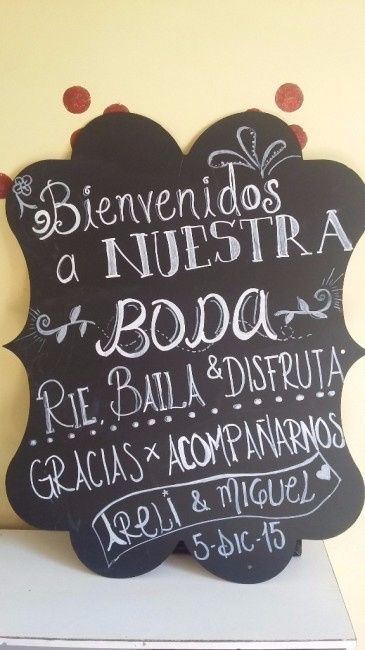 Bienvenidos
a NUESTRA
BODA
RIE, BAILA & DISFRUTA
GRACIAS x ACOMPAÑARNOS
ARELI & MIGUEL
5-DIC-15